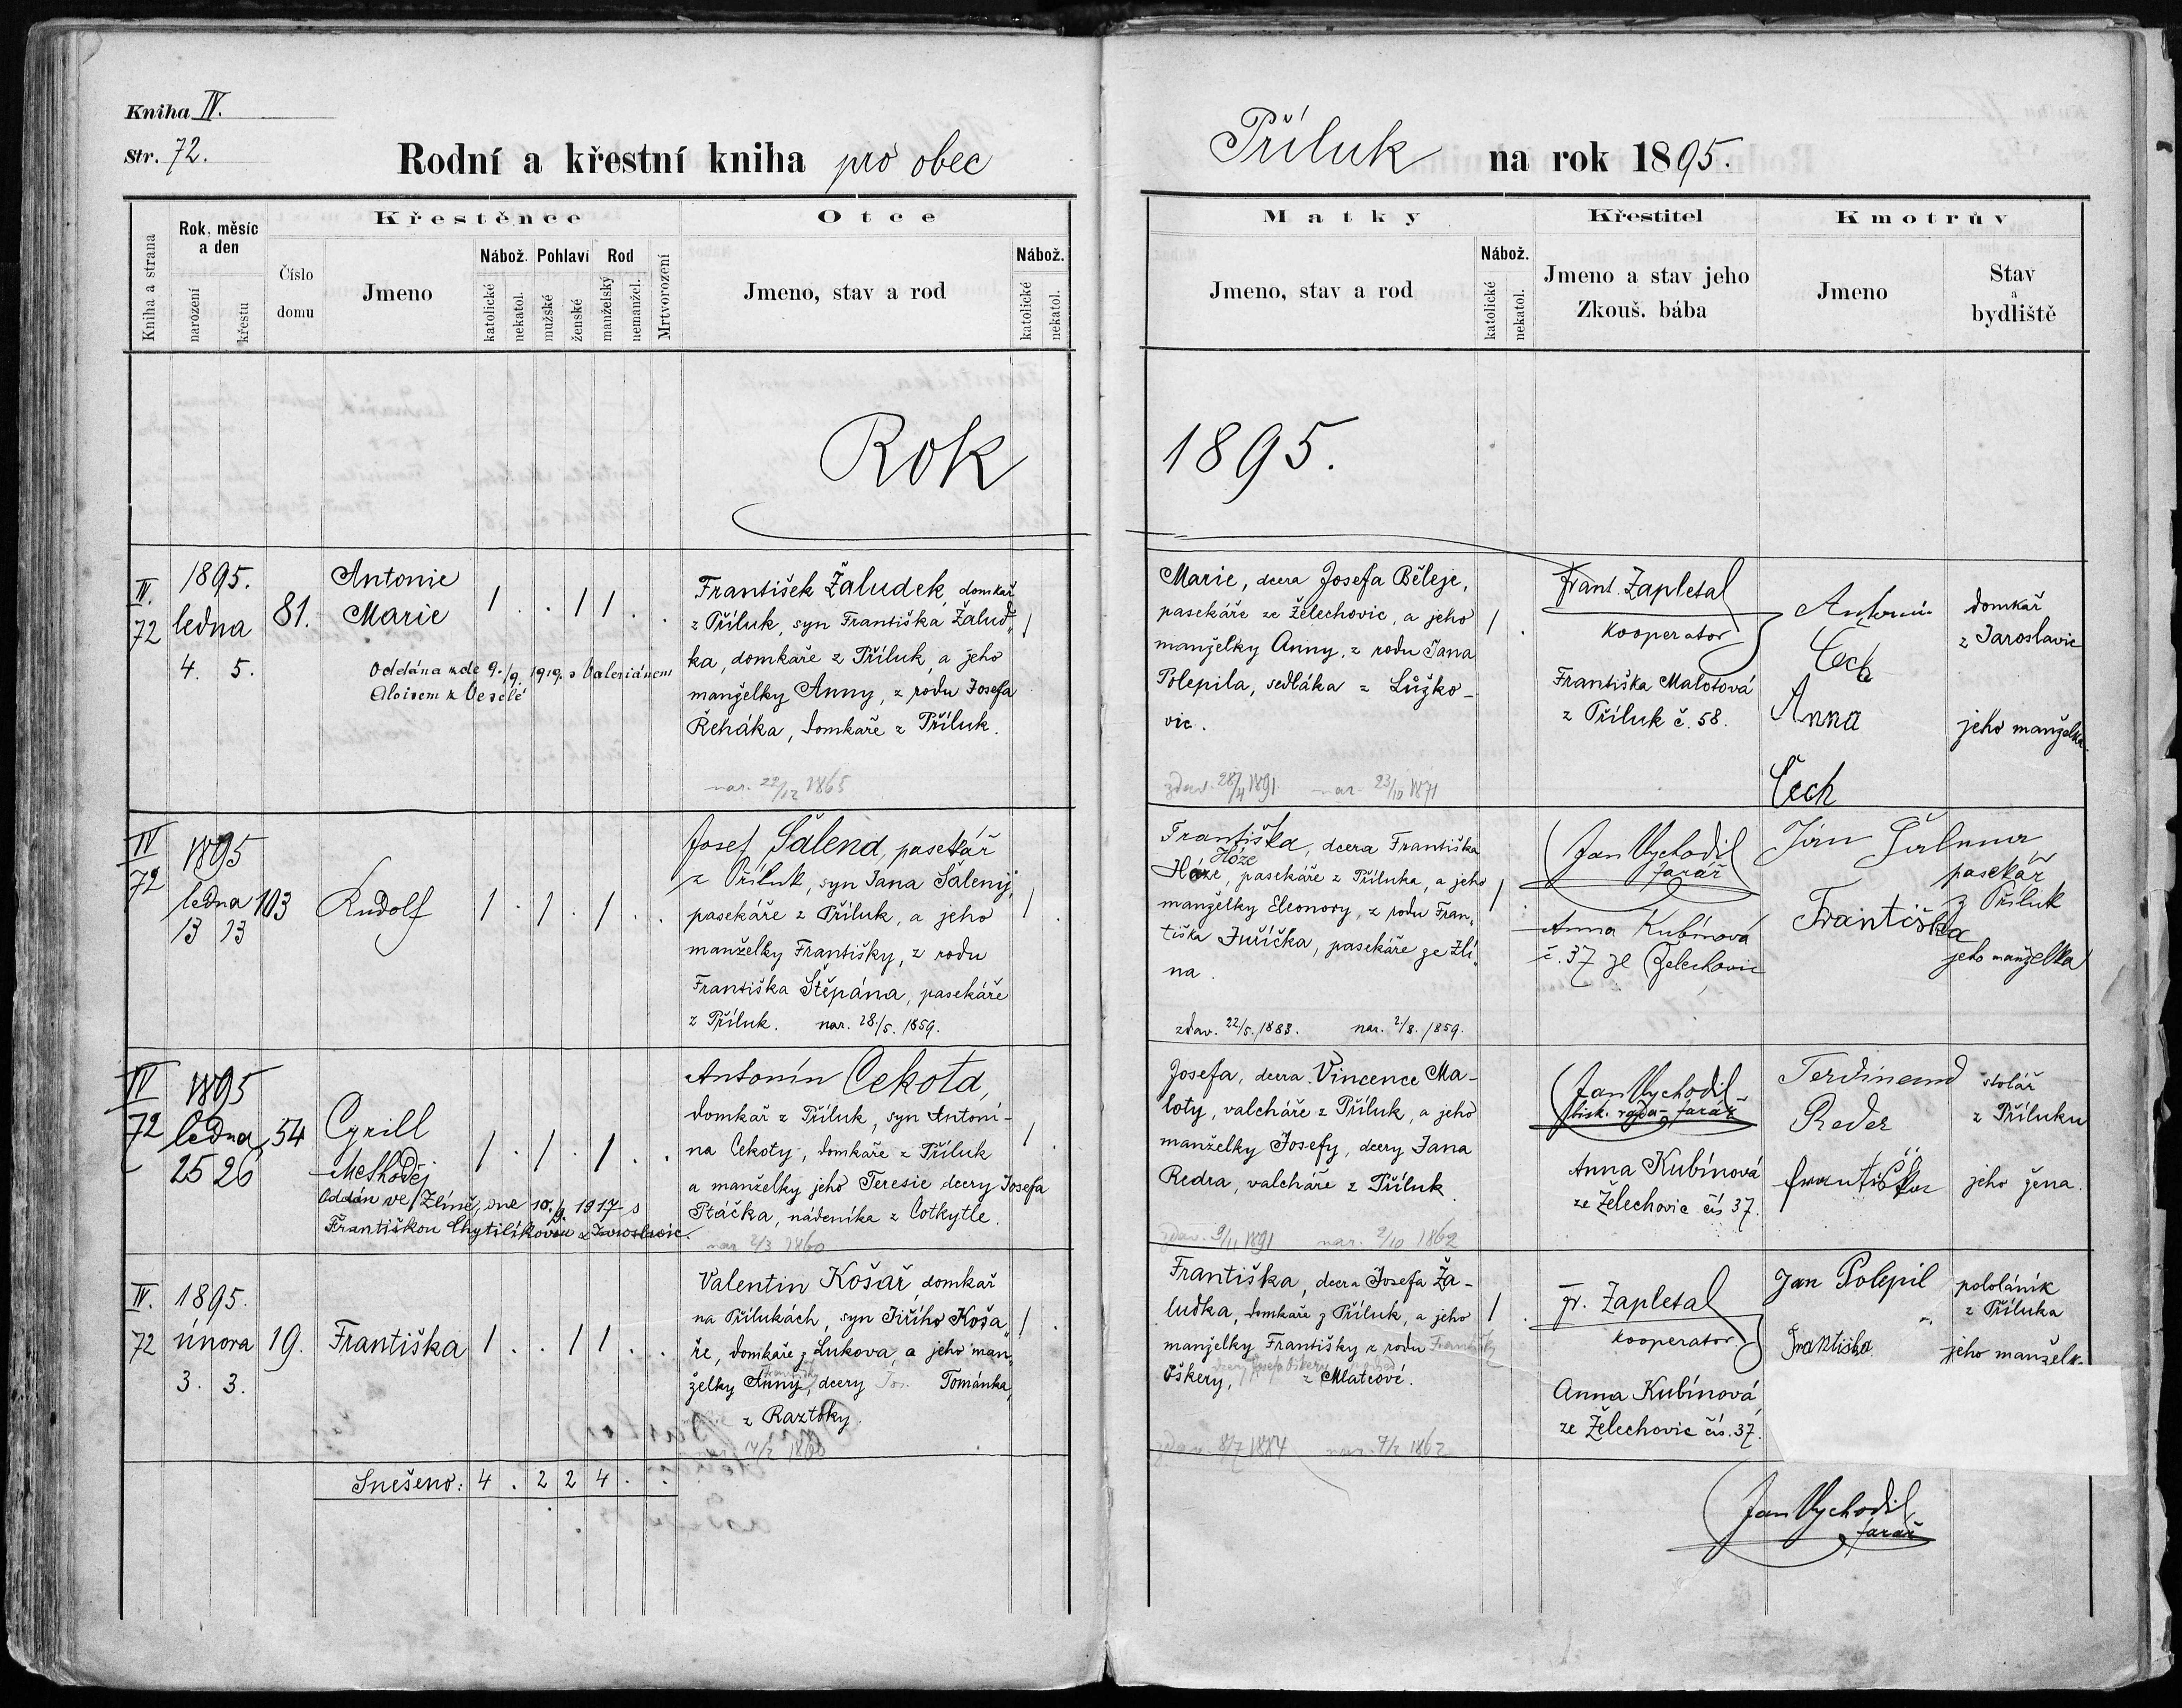 Kniha IV.
Str. 72.
Rodní a křestní kniha pro obec
Příluk na rok 1895.
Kniha a strana
Rok, měsíc
a den
narození
křestu
Číslo
domu
Křestěnce
Jmeno
Nábož.
katolické
nekatol.
Pohlaví
mužské
ženské
Rod
manželský
nemanžel.
Mrtvorození
Otce
Jmeno, stav a rod
Nábož.
katolické
nekatol.
Matky
Jmeno, stav a rod
Nábož.
katolické
nekatol.
Křestitel
Jmeno a stav jeho
Zkouš. bába
Kmotrův
Jmeno
Stav
a
bydliště
Rok
1895.
IV.
72
1895.
ledna
4. 5.
81.
Antonie
Marie
1 . . 1 1 . .
Oddána zde 9./9. 1919. s Valeriánem
Aloisem z Veselé
František Žaludek, domkař
z Příluk, syn Františka Žalud„
ka, domkaře z Příluk, a jeho
manželky Anny, z rodu Josefa
Řeháka, domkaře z Příluk.
nar. 22/12 1865
1
Marie, dcera Josefa Běleje,
pasekáře ze Želechovic, a jeho
manželky Anny, z rodu Jana
Polepila, sedláka z Lůžko-
vic.
zdav. 28/4 1891 nar. 23/10 1871
1 .
Frant. Zapletal
kooperator
Františka Malotová
z Příluk č. 58.
Antonín
Čech
Anna
Čech
domkař
z Jaroslavic
jeho manželka.
IV
72
1895
ledna
13 13
103
Rudolf
1 . 1 . 1 . .
Josef Šálena, pasekář
z Příluk, syn Jana Šáleny,
pasekáře z Příluk, a jeho
manželky Františky, z rodu
Františka Štěpána, pasekáře
z Příluk. nar. 28./5. 1859.
1 .
Františka, dcera Františka
Hóze
pasekáře z Příluka, a jeho
manželky Eleonory, z rodu Fran„
tiška Juříčka, pasekáře ze Zlí„
na.
zdav. 22/5. 1883. nar. 2/8. 1859.
1 .
Jan Vychodil
farář
Anna Kubínová
č. 37 ze Želechovic
Jan
Františka
pasekář
z Příluk
jeho manželka
IV
72
1895
ledna
25 26
54
Cyrill
Methoděj
1 . 1 . 1 . .
Oddán ve Zlíně, dne 10./9. 1917 s
Františkou Chytilíkovou z Jaroslavic.
Antonín Cekota,
domkař z Příluk, syn Antoní-
na Cekoty, domkaře z Příluk
a manželky jeho Teresie dcery Josefa
Ptáčka, nádeníka z Cotkytle.
nar. 2/3 1860
1 .
Josefa, dcera Vincence Ma-
loty, valcháře z Příluk, a jeho
manželky Josefy, dcery Jana
Redra, valcháře z Příluk.
zdav. 9/11 1891 nar. 2/10 1862
Jan Vychodil
bisk. rada - farář
Anna Kubínová
ze Želechovic čís 37.
Ferdinand
Reder
Františka
stolář
z Příluku
jeho žena.
IV.
72
1895.
února
3. 3.
19.
Františka
1 . . 1 1 . .
Valentin Košař, domkař
na Přílukách, syn Jiřího Koša„
ře, domkaře z Lukova, a jeho man„
želky Anny, dcery Jos. Tománka,
z Raztoky.
14/2 1860
1 .
Františka, dcera Josefa Ža-
ludka, domkaře z Příluk, a jeho
manželky Františky z rodu Františky
Oškery, z Mlatcové.
zdav. 8/7 1884 nar. 7/2 1862
1 .
Fr. Zapletal
kooperator.
Anna Kubínová
ze Želechovic čís. 37.
Jan Polepil
Františka
pololáník
z Příluka
jeho manželk
Snešeno: 4 . 2 2 4 . .
Jan Vychodil
farář